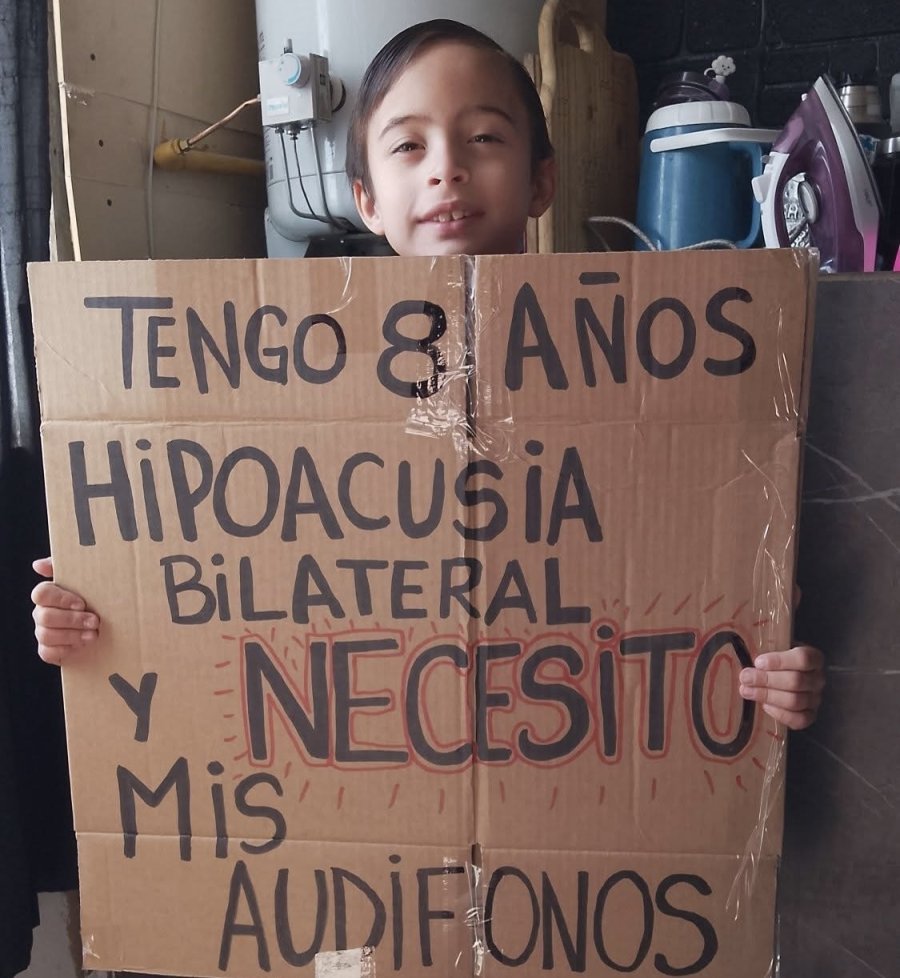 TENGO 8 AÑOS
HiPOACUSiA
BiLATERAL
Y NECESiTO
MiS
AUDiFONOS